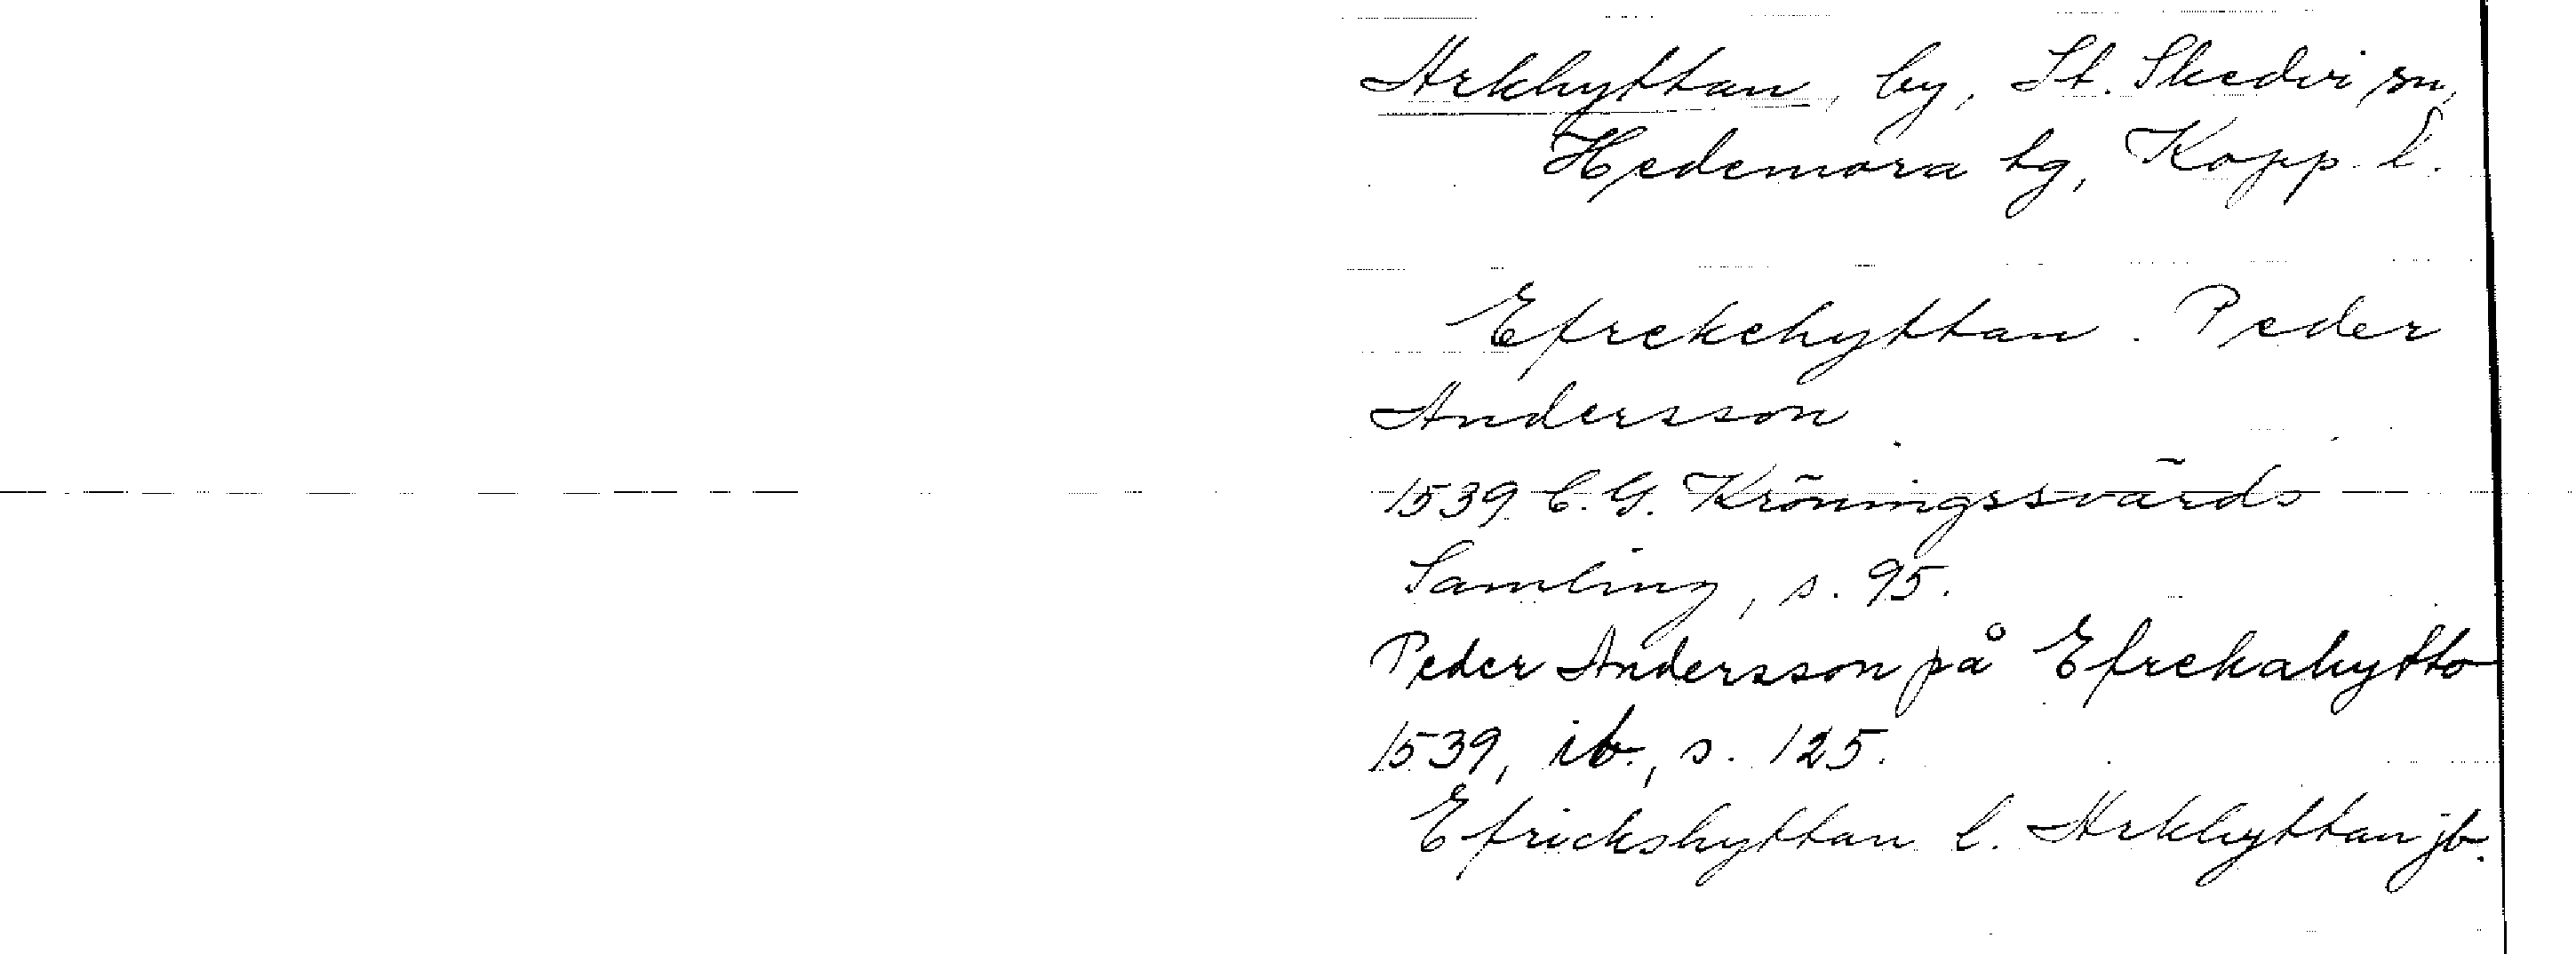 Arkhyttan, by, St. Skedvi sn,
Hedemora tg, Kopp. l.
Efrekehyttan. Peder
Andersson
1539 C. G. Kröningssvärds
Samling, s. 95.
Peder Andersson på Efrekahytto
1539, ib., s. 125.
Efrickshyttan l. Arkhyttan jb.